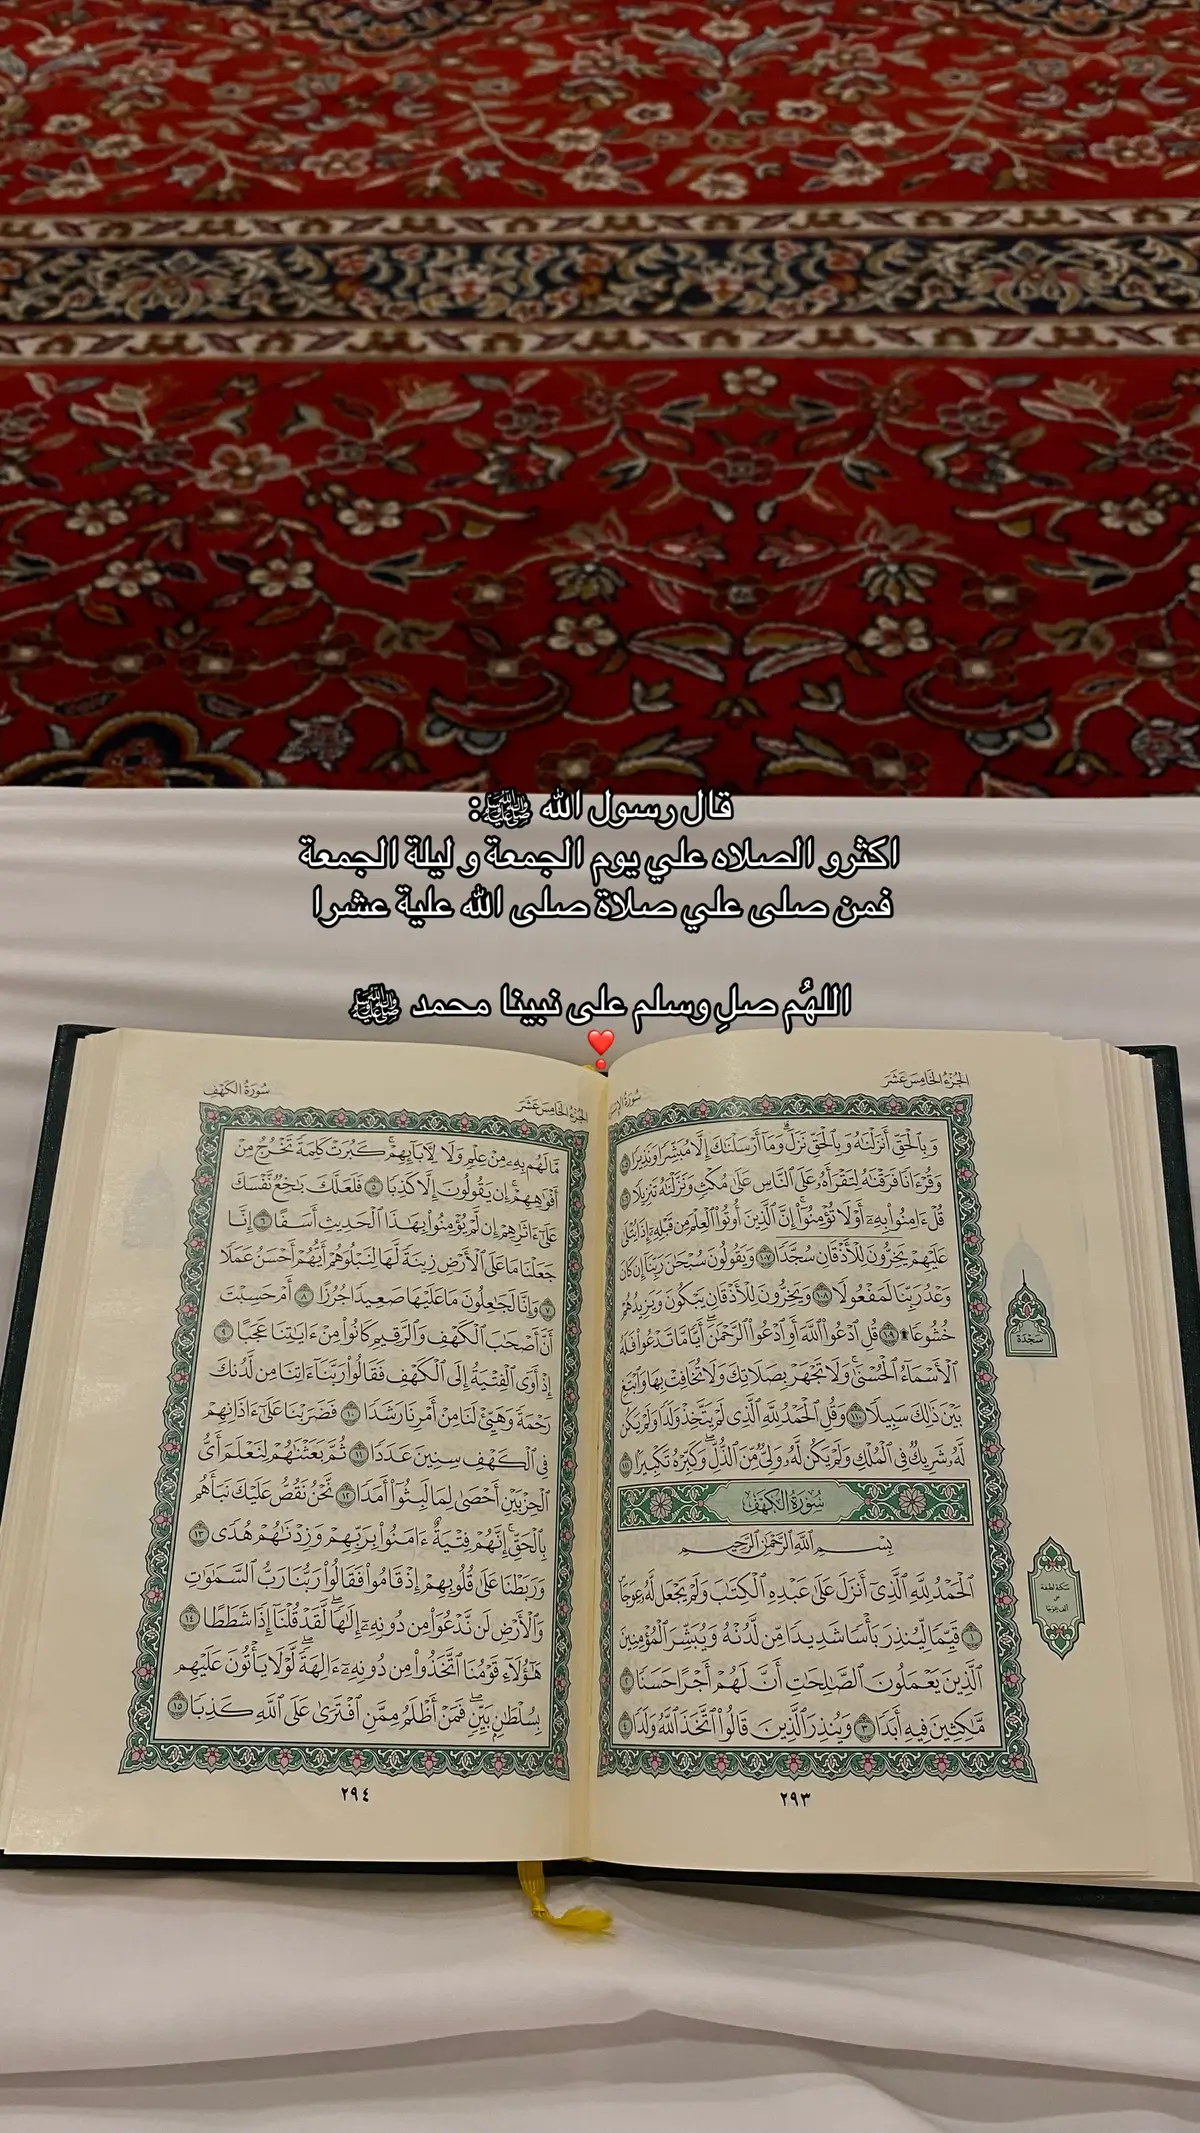 قال رسول الله ﷺ:
اكثرو الصلاه علي يوم الجمعة و ليلة الجمعة
فمن صلى علي صلاة صلى الله علية عشرا
اللهُم صلِ وسلم على نبينا محمد ﷺ
❣️
الجزء الخامس عشر
سورة الإس
وَبِالْحَقِّ أَنزَلْنَٰهُ وَبِالْحَقِّ نَزَلَ وَمَآ أَرْسَلْنَٰكَ إِلَّا مُبَشِّرًا وَنَذِيرًا ١٠٥
وَقُرْءَانًا فَرَقْنَٰهُ لِتَقْرَأَهُۥ عَلَى ٱلنَّاسِ عَلَىٰ مُكْثٍ وَنَزَّلْنَٰهُ تَنزِيلًا ١٠٦
قُلْ ءَامِنُوا۟ بِهِۦٓ أَوْ لَا تُؤْمِنُوٓا۟ إِنَّ ٱلَّذِينَ أُوتُوا۟ ٱلْعِلْمَ مِن قَبْلِهِۦٓ إِذَا يُتْلَىٰ
عَلَيْهِمْ يَخِرُّونَ لِلْأَذْقَانِ سُجَّدًا ١٠٧ وَيَقُولُونَ سُبْحَٰنَ رَبِّنَآ إِن كَانَ
وَعْدُ رَبِّنَا لَمَفْعُولًا ١٠٨ وَيَخِرُّونَ لِلْأَذْقَانِ يَبْكُونَ وَيَزِيدُهُمْ
خُشُوعًا ۩ ١٠٩ قُلِ ٱدْعُوا۟ ٱللَّهَ أَوِ ٱدْعُوا۟ ٱلرَّحْمَٰنَ أَيًّا مَّا تَدْعُوا۟ فَلَهُ
ٱلْأَسْمَآءُ ٱلْحُسْنَىٰ وَلَا تَجْهَرْ بِصَلَاتِكَ وَلَا تُخَافِتْ بِهَا وَٱبْتَغِ
بَيْنَ ذَٰلِكَ سَبِيلًا ١١٠ وَقُلِ ٱلْحَمْدُ لِلَّهِ ٱلَّذِى لَمْ يَتَّخِذْ وَلَدًا وَلَمْ يَكُن
لَّهُۥ شَرِيكٌ فِى ٱلْمُلْكِ وَلَمْ يَكُن لَّهُۥ وَلِىٌّ مِّنَ ٱلذُّلِّ وَكَبِّرْهُ تَكْبِيرًۢا ١١١
سُورَةُ الكَهْفِ
بِسْمِ ٱللَّهِ ٱلرَّحْمَٰنِ ٱلرَّحِيمِ
ٱلْحَمْدُ لِلَّهِ ٱلَّذِىٓ أَنزَلَ عَلَىٰ عَبْدِهِ ٱلْكِتَٰبَ وَلَمْ يَجْعَل لَّهُۥ عِوَجَا
١ قَيِّمًا لِّيُنذِرَ بَأْسًا شَدِيدًا مِّن لَّدُنْهُ وَيُبَشِّرَ ٱلْمُؤْمِنِينَ
ٱلَّذِينَ يَعْمَلُونَ ٱلصَّٰلِحَٰتِ أَنَّ لَهُمْ أَجْرًا حَسَنًا ٢
مَّٰكِثِينَ فِيهِ أَبَدًا ٣ وَيُنذِرَ ٱلَّذِينَ قَالُوا۟ ٱتَّخَذَ ٱللَّهُ وَلَدًا ٤
٢٩٣
سَجْدَة
سكتة لطيفة
على
ألف عوجا
الجزء الخامس عشر
سُورَةُ الكَهْفِ
مَّا لَهُم بِهِۦ مِنْ عِلْمٍ وَلَا لِءَابَآئِهِمْ كَبُرَتْ كَلِمَةً تَخْرُجُ مِنْ
أَفْوَٰهِهِمْ إِن يَقُولُونَ إِلَّا كَذِبًا ٥ فَلَعَلَّكَ بَٰخِعٌ نَّفْسَكَ
عَلَىٰٓ ءَاثَٰرِهِمْ إِن لَّمْ يُؤْمِنُوا۟ بِهَٰذَا ٱلْحَدِيثِ أَسَفًا ٦ إِنَّا
جَعَلْنَا مَا عَلَى ٱلْأَرْضِ زِينَةً لَّهَا لِنَبْلُوَهُمْ أَيُّهُمْ أَحْسَنُ عَمَلًا
٧ وَإِنَّا لَجَٰعِلُونَ مَا عَلَيْهَا صَعِيدًا جُرُزًا ٨ أَمْ حَسِبْتَ
أَنَّ أَصْحَٰبَ ٱلْكَهْفِ وَٱلرَّقِيمِ كَانُوا۟ مِنْ ءَايَٰتِنَا عَجَبًا ٩
إِذْ أَوَى ٱلْفِتْيَةُ إِلَى ٱلْكَهْفِ فَقَالُوا۟ رَبَّنَآ ءَاتِنَا مِن لَّدُنكَ
رَحْمَةً وَهَيِّئْ لَنَا مِنْ أَمْرِنَا رَشَدًا ١٠ فَضَرَبْنَا عَلَىٰٓ ءَاذَانِهِمْ
فِى ٱلْكَهْفِ سِنِينَ عَدَدًا ١١ ثُمَّ بَعَثْنَٰهُمْ لِنَعْلَمَ أَىُّ
ٱلْحِزْبَيْنِ أَحْصَىٰ لِمَا لَبِثُوٓا۟ أَمَدًا ١٢ نَّحْنُ نَقُصُّ عَلَيْكَ نَبَأَهُم
بِٱلْحَقِّ إِنَّهُمْ فِتْيَةٌ ءَامَنُوا۟ بِرَبِّهِمْ وَزِدْنَٰهُمْ هُدًى ١٣
وَرَبَطْنَا عَلَىٰ قُلُوبِهِمْ إِذْ قَامُوا۟ فَقَالُوا۟ رَبُّنَا رَبُّ ٱلسَّمَٰوَٰتِ
وَٱلْأَرْضِ لَن نَّدْعُوَا۟ مِن دُونِهِۦٓ إِلَٰهًا لَّقَدْ قُلْنَآ إِذًا شَطَطًا ١٤
هَٰٓؤُلَآءِ قَوْمُنَا ٱتَّخَذُوا۟ مِن دُونِهِۦٓ ءَالِهَةً لَّوْلَا يَأْتُونَ عَلَيْهِم
بِسُلْطَٰنٍۭ بَيِّنٍ فَمَنْ أَظْلَمُ مِمَّنِ ٱفْتَرَىٰ عَلَى ٱللَّهِ كَذِبًا ١٥
٢٩٤